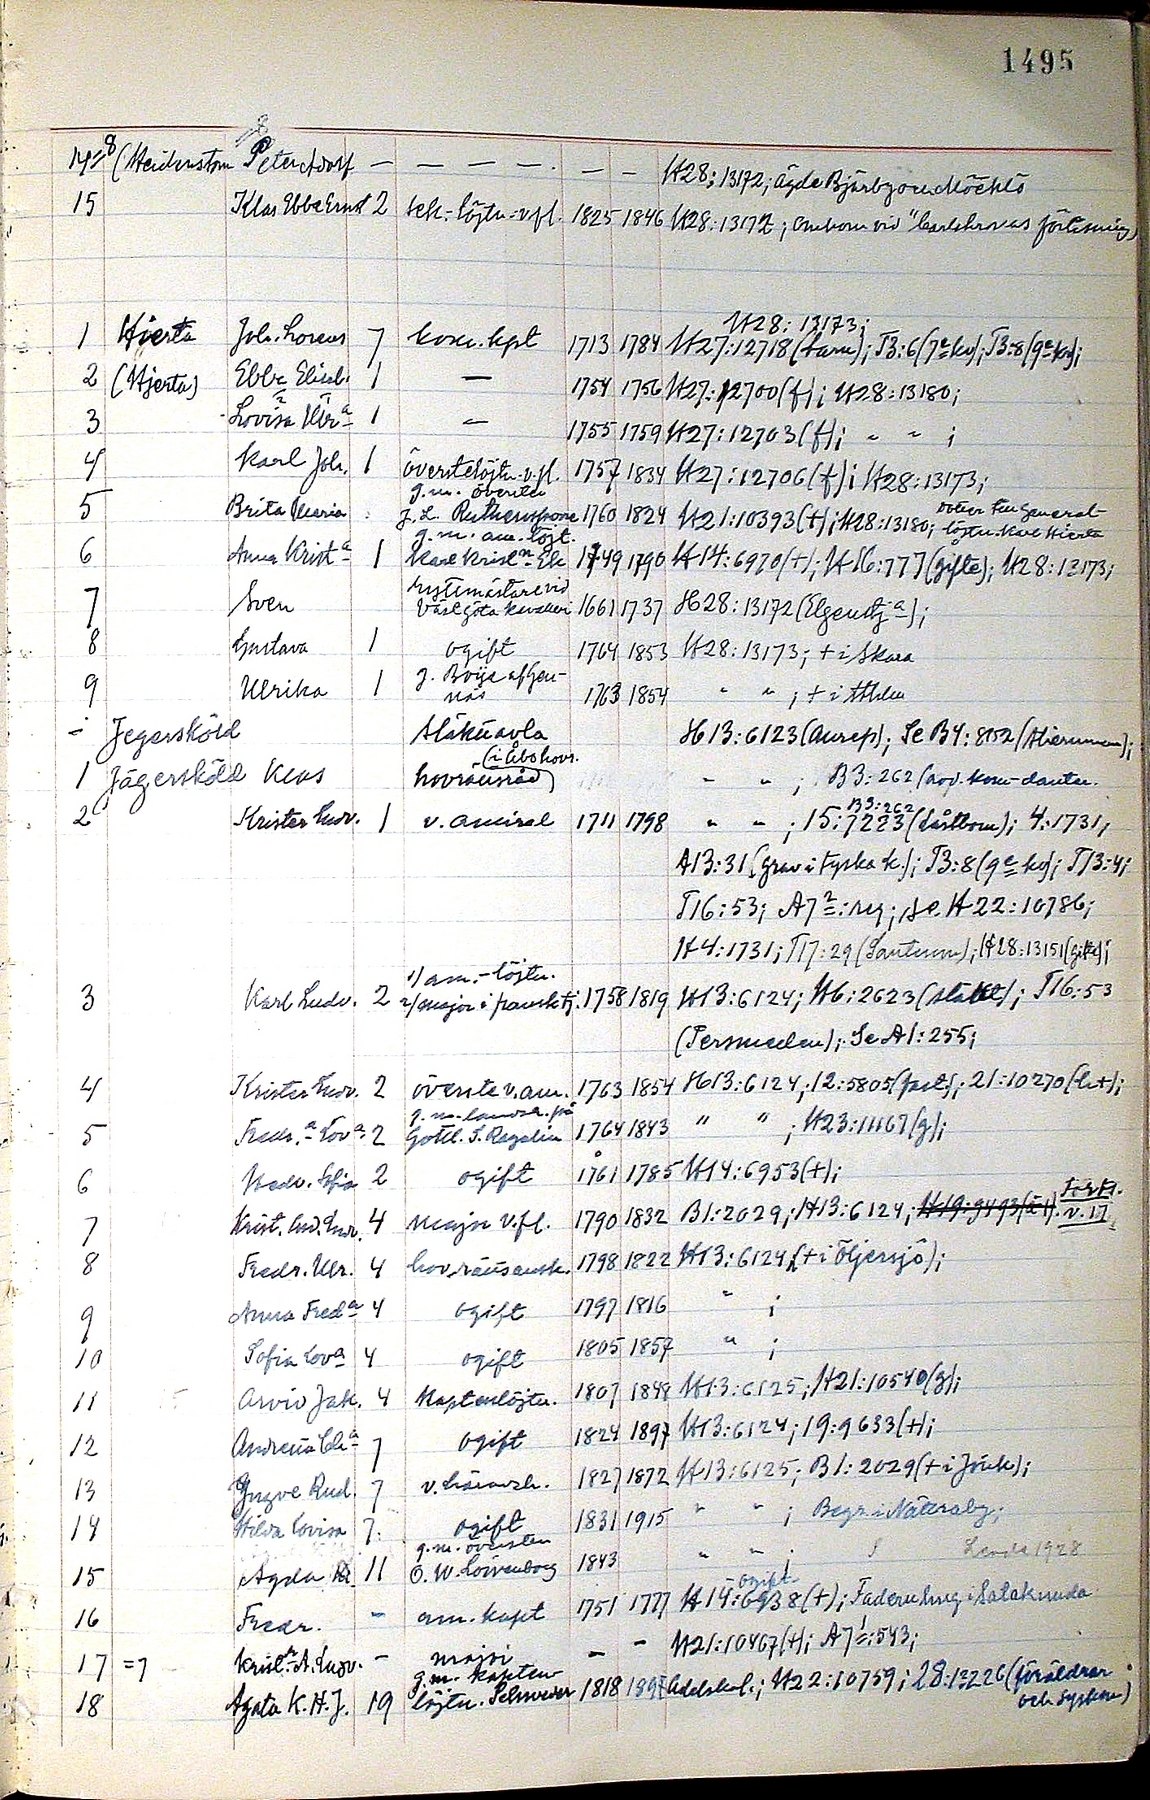 1495
14=8 (Heidenstam Peter Adolf — — — — — — H28:13172; ägde Bjärby och Höckås
15 Klas Ebbe Ernst 2 sek.-löjtn. v. fl. 1825 1846 H28:13172; omkom vid "Carlskronas förlisning)
H28:13173;
1 Hierta Joh. Lorens 7 kom. kpt 1713 1784 H27:12718 (barn); T3:6 (7e kv); T3:8 (9e kv);
2 (Hjerta) Ebba Elisab. 1 — 1754 1756 H27:12700 (f); H28:13180;
3 Lovisa Ulr:a 1 — 1755 1759 H27:12703 (f); " " ;
4 Karl Joh. 1 överstelöjtn. v. fl. 1757 1834 H27:12706 (f); H28:13173;
5 Brita Maria g.m. översten J. L. Ruthensparre 1760 1824 H21:10393 (+); H28:13180; dotter till general-
löjtn. Karl Hierta
6 Anna Krist:a 1 g.m. am. löjt. Karl Krist:n Ek 1749 1790 H14:6970 (+); H16:777 (gifte); H28:13173;
7 Sven rustmästare vid Västgöta kavalleri 1661 1737 H28:13172 (Elgenstj:a);
8 Gustava 1 ogift 1764 1853 H28:13173; + i Skara
9 Ulrika 1 g. Boije af Gen-
näs 1763 1854 " " ; + i
- Jegersköld Släktavla H13:6123 (Anrep); Se B4:8152 ;
1 Jägersköld Klas hovrättsråd (i Åbo hovr.) " " ; B3:262
2 Krister Ludv. 1 v. amiral 1711 1798 " " ; B3:262 15:7223 (Låstbom); 4:1731;
A13:31 (grav i tyska k.); T3:8 (9e kv); T13:4;
T16:53; A7²:reg; se H22:10786;
H4:1731; T17:29 ; H28:13151 (gifte);
3 Karl Ludv. 2 1/ am.-löjtn. 2/ major i fransk tj. 1758 1819 H13:6124; H6:2623 ; T16:53
(Tersmeden); Se A1:255;
4 Krister Ludv. 2 överste v. am. 1763 1854 H13:6124; 12:5805 ; 21:10270 (h+);
5 Fredr.a Lov:a 2 g.m. landsh. på Gottl. S. Ragelin 1764 1843 " " ; H23:11167 (g);
6 Hedv. Sofia 2 ogift 1761 1785 H14:6953 (+);
7 Krist. Aud. Ludv. 4 major v. fl. 1790 1832 B1:2029; H13:6124; H19:9493 v. 17
8 Fredr. Ulr. 4 hovrättsausk. 1798 1822 H13:6124 (+ i Öljersjö);
9 Anna Fred:a 4 ogift 1797 1816 " ;
10 Sofia Lov:a 4 ogift 1805 1857 " ;
11 Arvid Jak. 4 Kaptenlöjtn. 1807 1848 H13:6125; H21:10540 (g);
12 7 ogift 1824 1897 H13:6124; 19:9633 (+);
13 Yngve Rud. 7 v. häradsh. 1827 1872 H13:6125; B1:2029 (+ i Jönk);
14 Hilda Lovisa 7. ogift 1831 1915 " " ; Begr. i Nättraby;
15 Agda 11 g.m. översten O. W. Lövenborg 1843 " " ; Levde 1928
16 Fredr. - am. kapt 1751 1777 H14:6938 (+); ogift Fadern kwg i Salaknuda
H21:10467 (+); A7¹:543;
17 =7 Krist:r A. Ludv. - major - -
18 Agata K. H. J. 19 g.m. kapten-
löjtn. Schneider 1818 1897 Adelskal.; H22:10759; 28:13226 (föräldrar
och syskon)